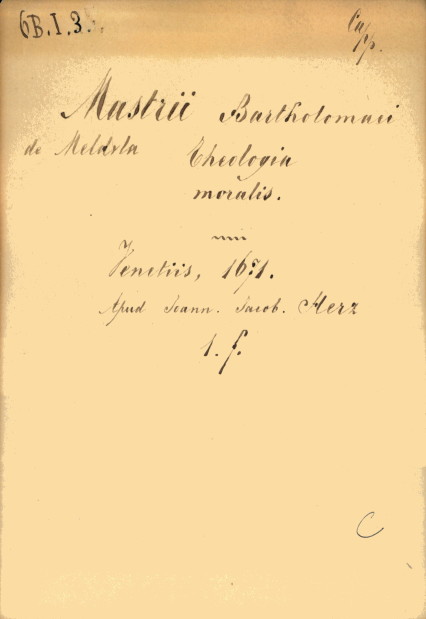 6B.I.3.
Capp.
Mastrii Bartholomaei
de Meldula Theologia
moralis.
Venetiis, 1671.
Apud Joann. Jacob. Herz
1. f.
C